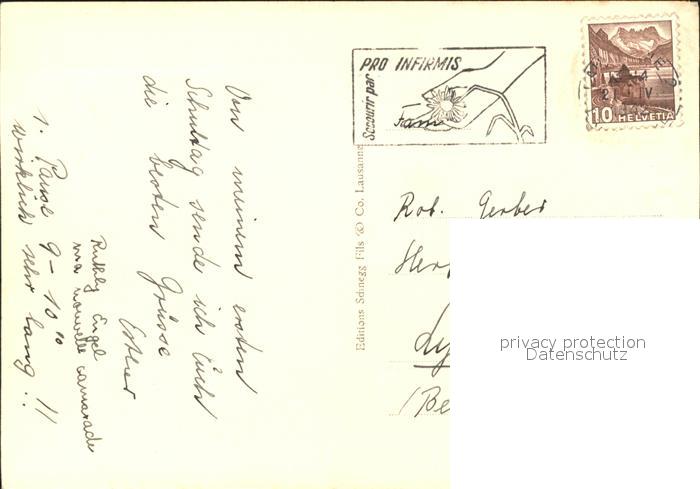 Von meinem ersten
Schultag sende ich Euch
die besten Grüsse
Esther
Ruthly Engel
ma nouvelle camarade
1. Pause 9 - 10 ⁰⁰
wirklich sehr lang !!
PRO INFIRMIS
Secourir par
Fam.
10 HELVETIA
Editions Sdinegg Fils & Co. Lausanne
Rob. Gerber
Ly
(Be
privacy protection
Datenschutz